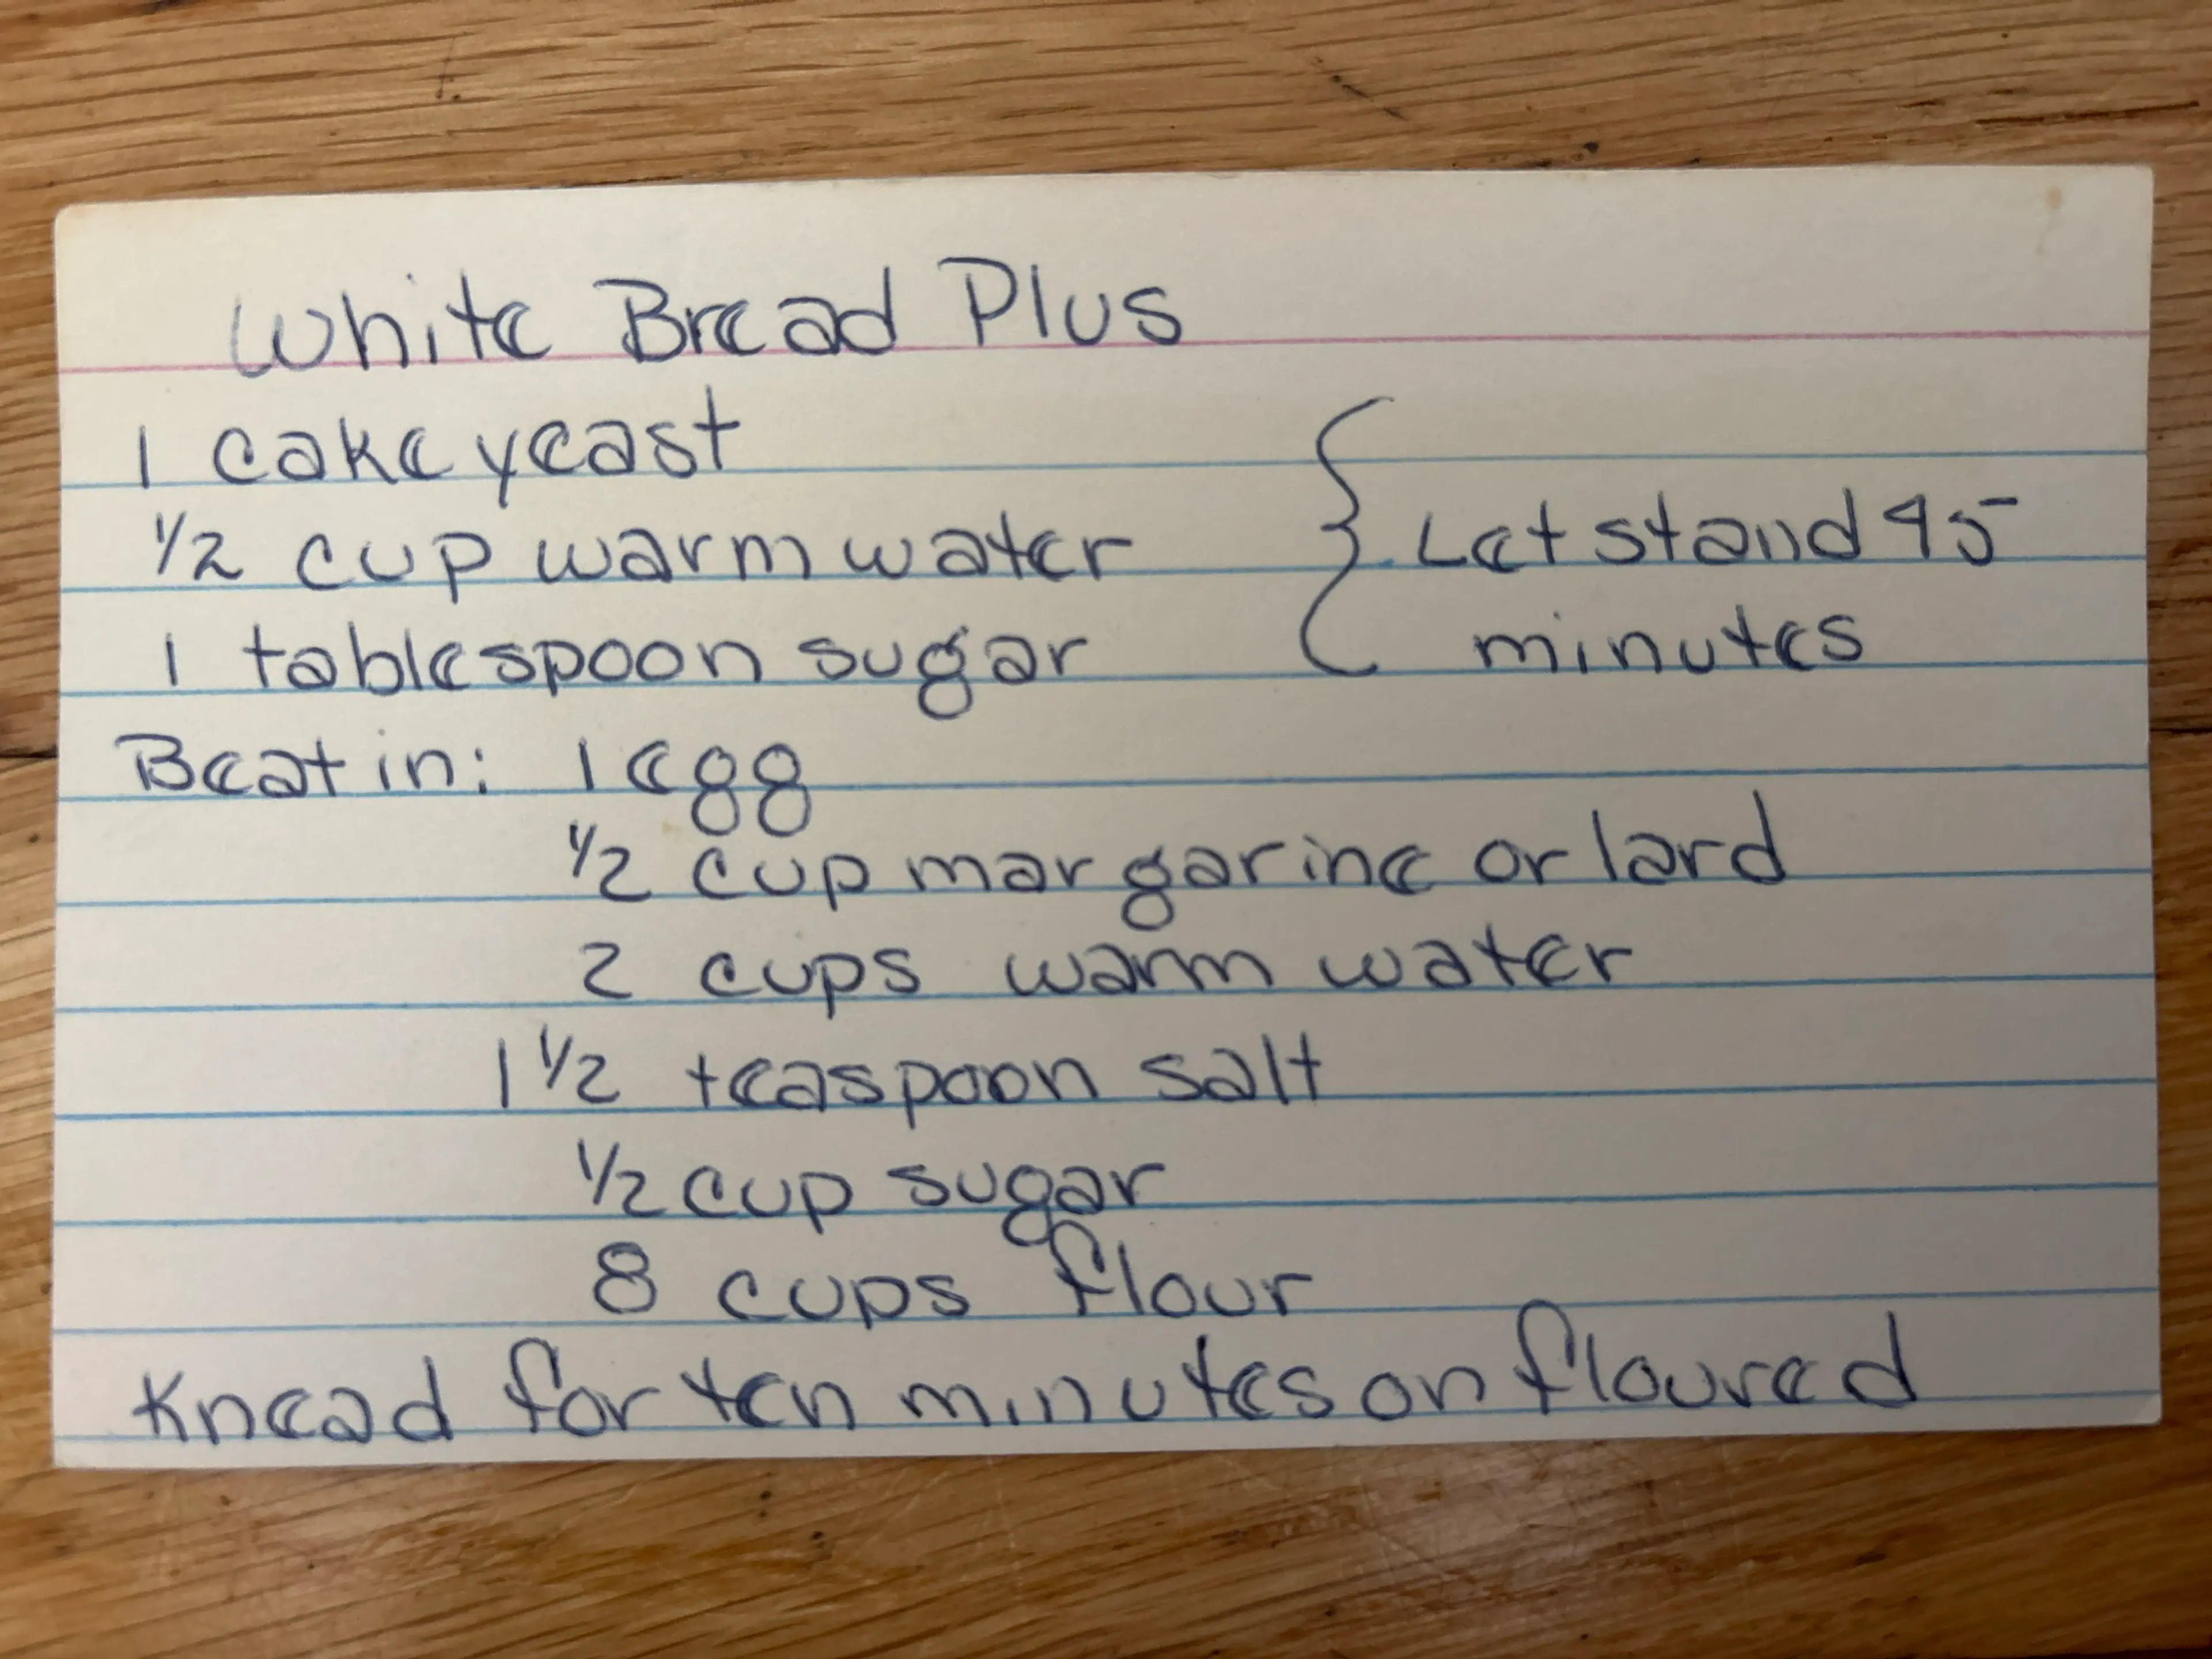 White Bread Plus
1 cake yeast
1/2 cup warm water
1 tablespoon sugar
{ Let stand 45
minutes
Beat in: 1 egg
1/2 cup margarine or lard
2 cups warm water
1 1/2 teaspoon salt
1/2 cup sugar
8 cups flour
Knead for ten minutes on floured